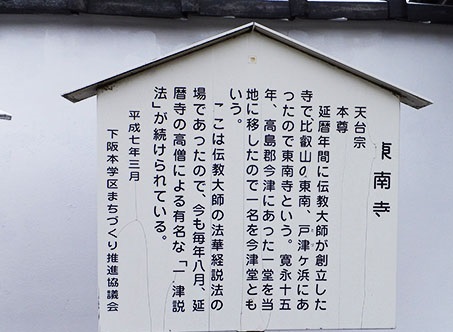 東南寺
天台宗
本尊
延暦年間に伝教大師が創立した
寺で比叡山の東南、戸津ヶ浜にあ
ったので東南寺という。寛永十五
年、高島郡今津にあった一堂を当
地に移したので一名を今津堂とも
いう。
ここは伝教大師の法華経説法の
場であったので、今も毎年八月、延
暦寺の高僧による有名な「一津説
法」が続けられている。
平成七年三月
下阪本学区まちづくり推進協議会